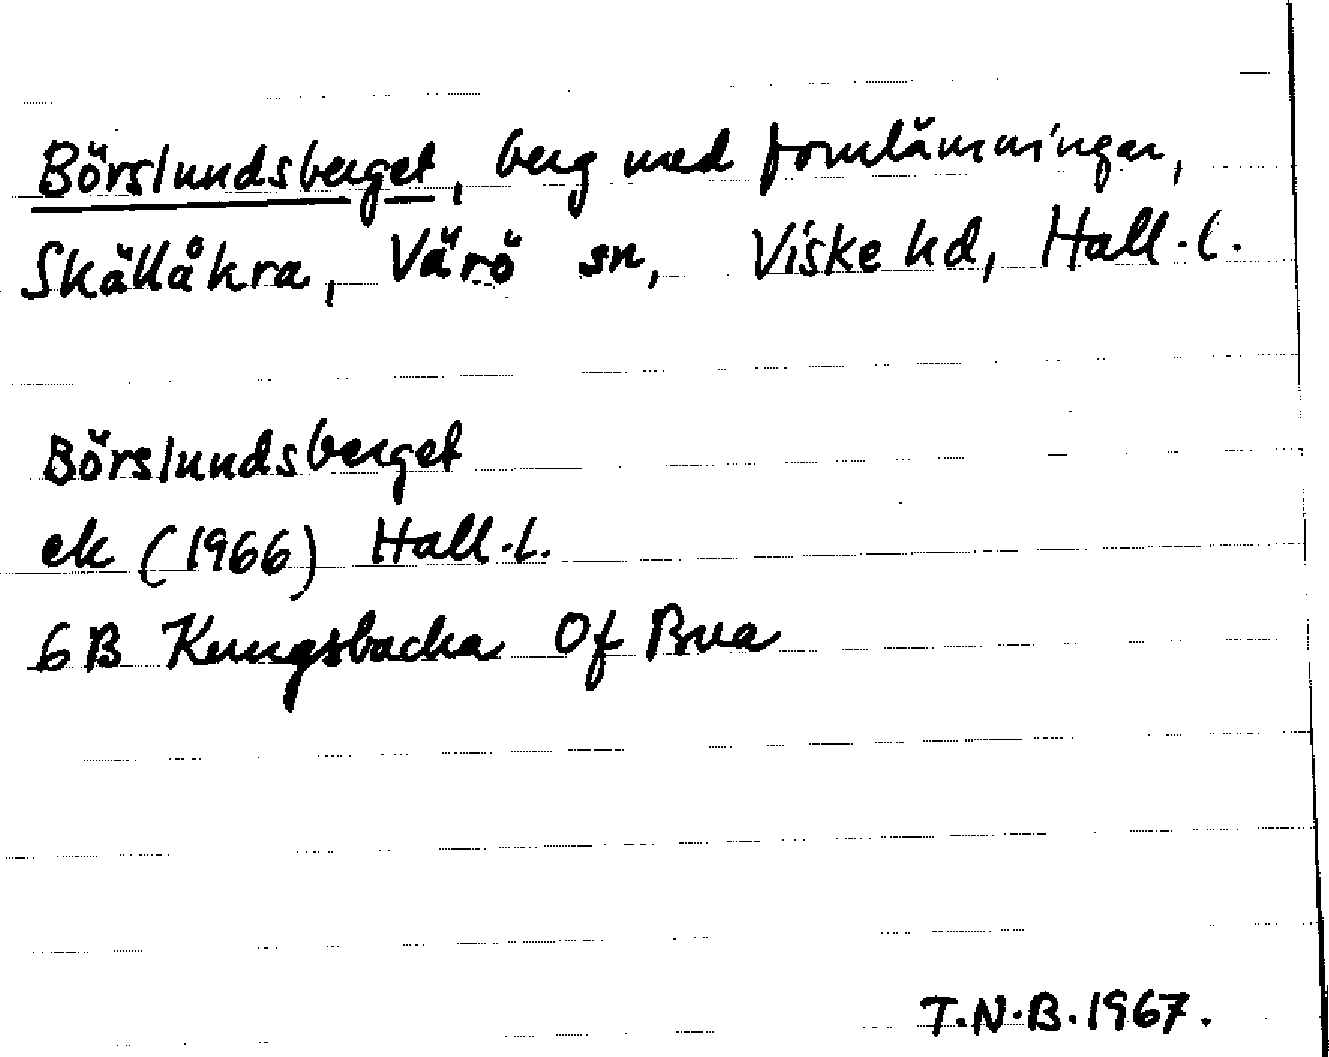 Börslundsberget, berg med fornlämningar,
Skällåkra, Värö sn, Viske hd, Hall.l.
Börslundsberget
ek (1966) Hall.l.
6B Kungsbacka 0f Bua
T.N.B.1967.